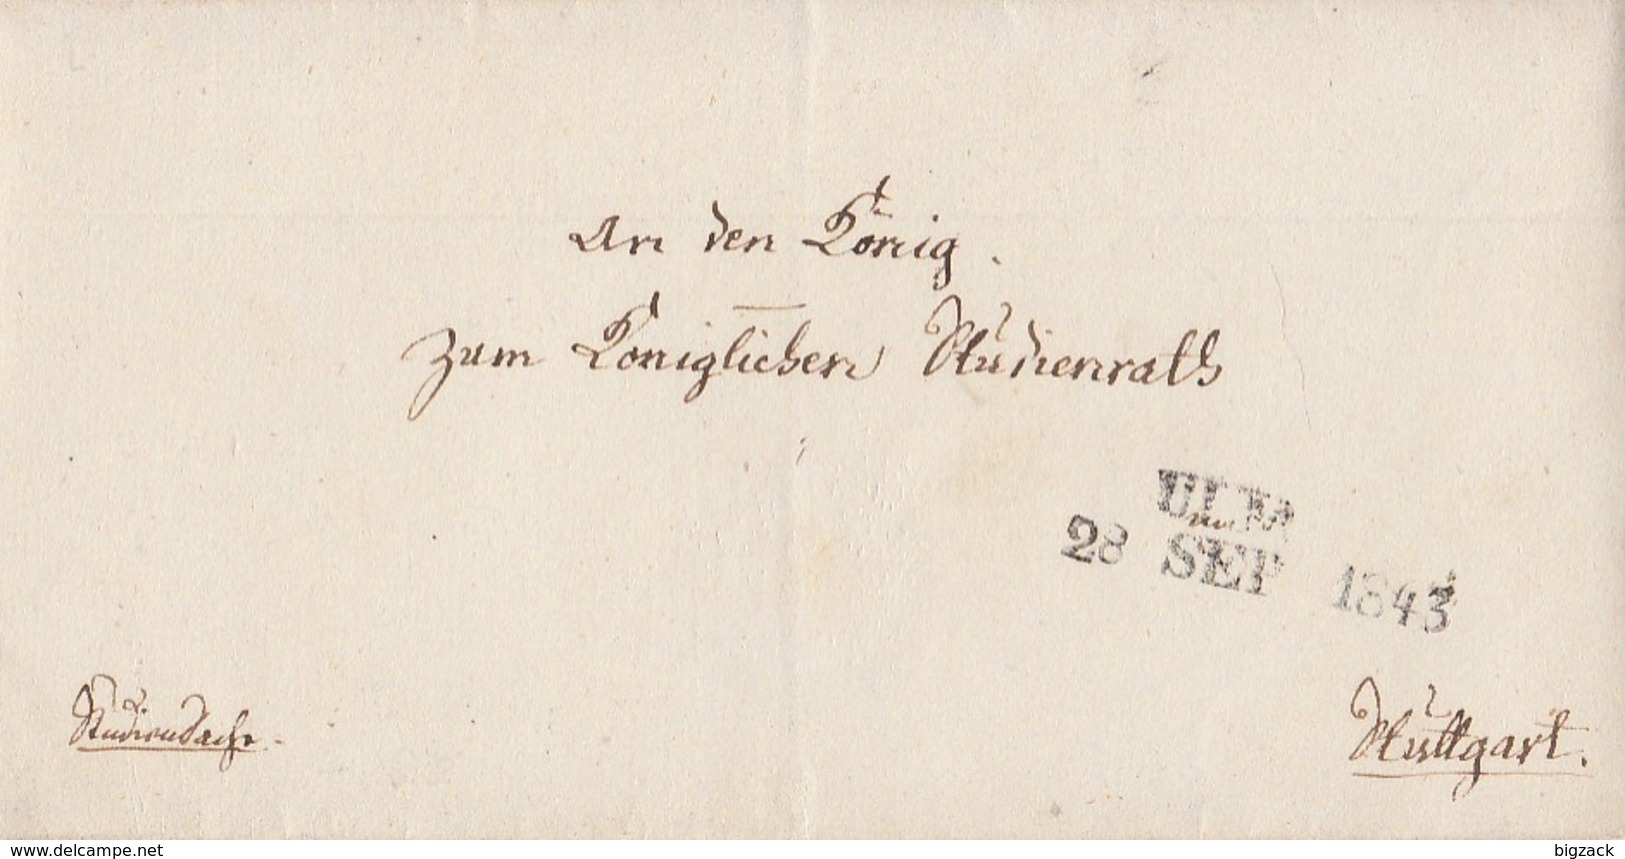 An den König.
zum Königlichen Studienrath
ULM
28 SEP 1843
Studiensache.
Stuttgart.
www.delcampe.net
bigzack